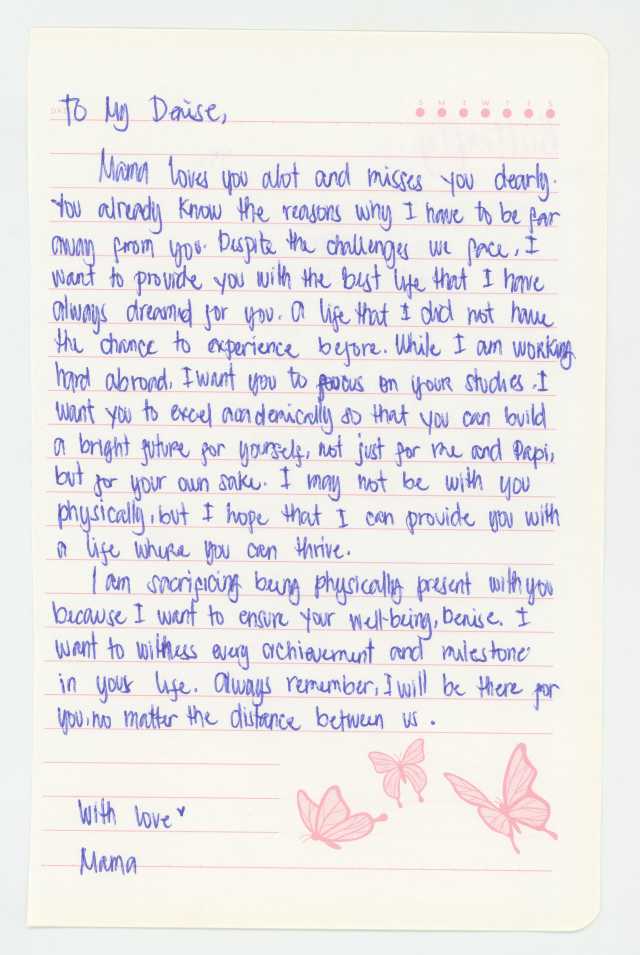 To My Denise,
S M T W T F S
Mama loves you alot and misses you dearly.
You already know the reasons why I have to be far
away from you. Despite the challenges we face, I
want to provide you with the best life that I have
always dreamed for you. A life that I did not have
the chance to experience before. While I am working
hard abroad, I want you to focus on your studies. I
want you to excel academically so that you can build
a bright future for yourself, not just for me and Papi,
but for your own sake. I may not be with you
physically, but I hope that I can provide you with
a life where you can thrive.
I am sacrificing being physically present with you
because I want to ensure your well-being, Denise. I
want to witness every achievement and milestone
in your life. Always remember, I will be there for
you, no matter the distance between us.
With love ♥
Mama